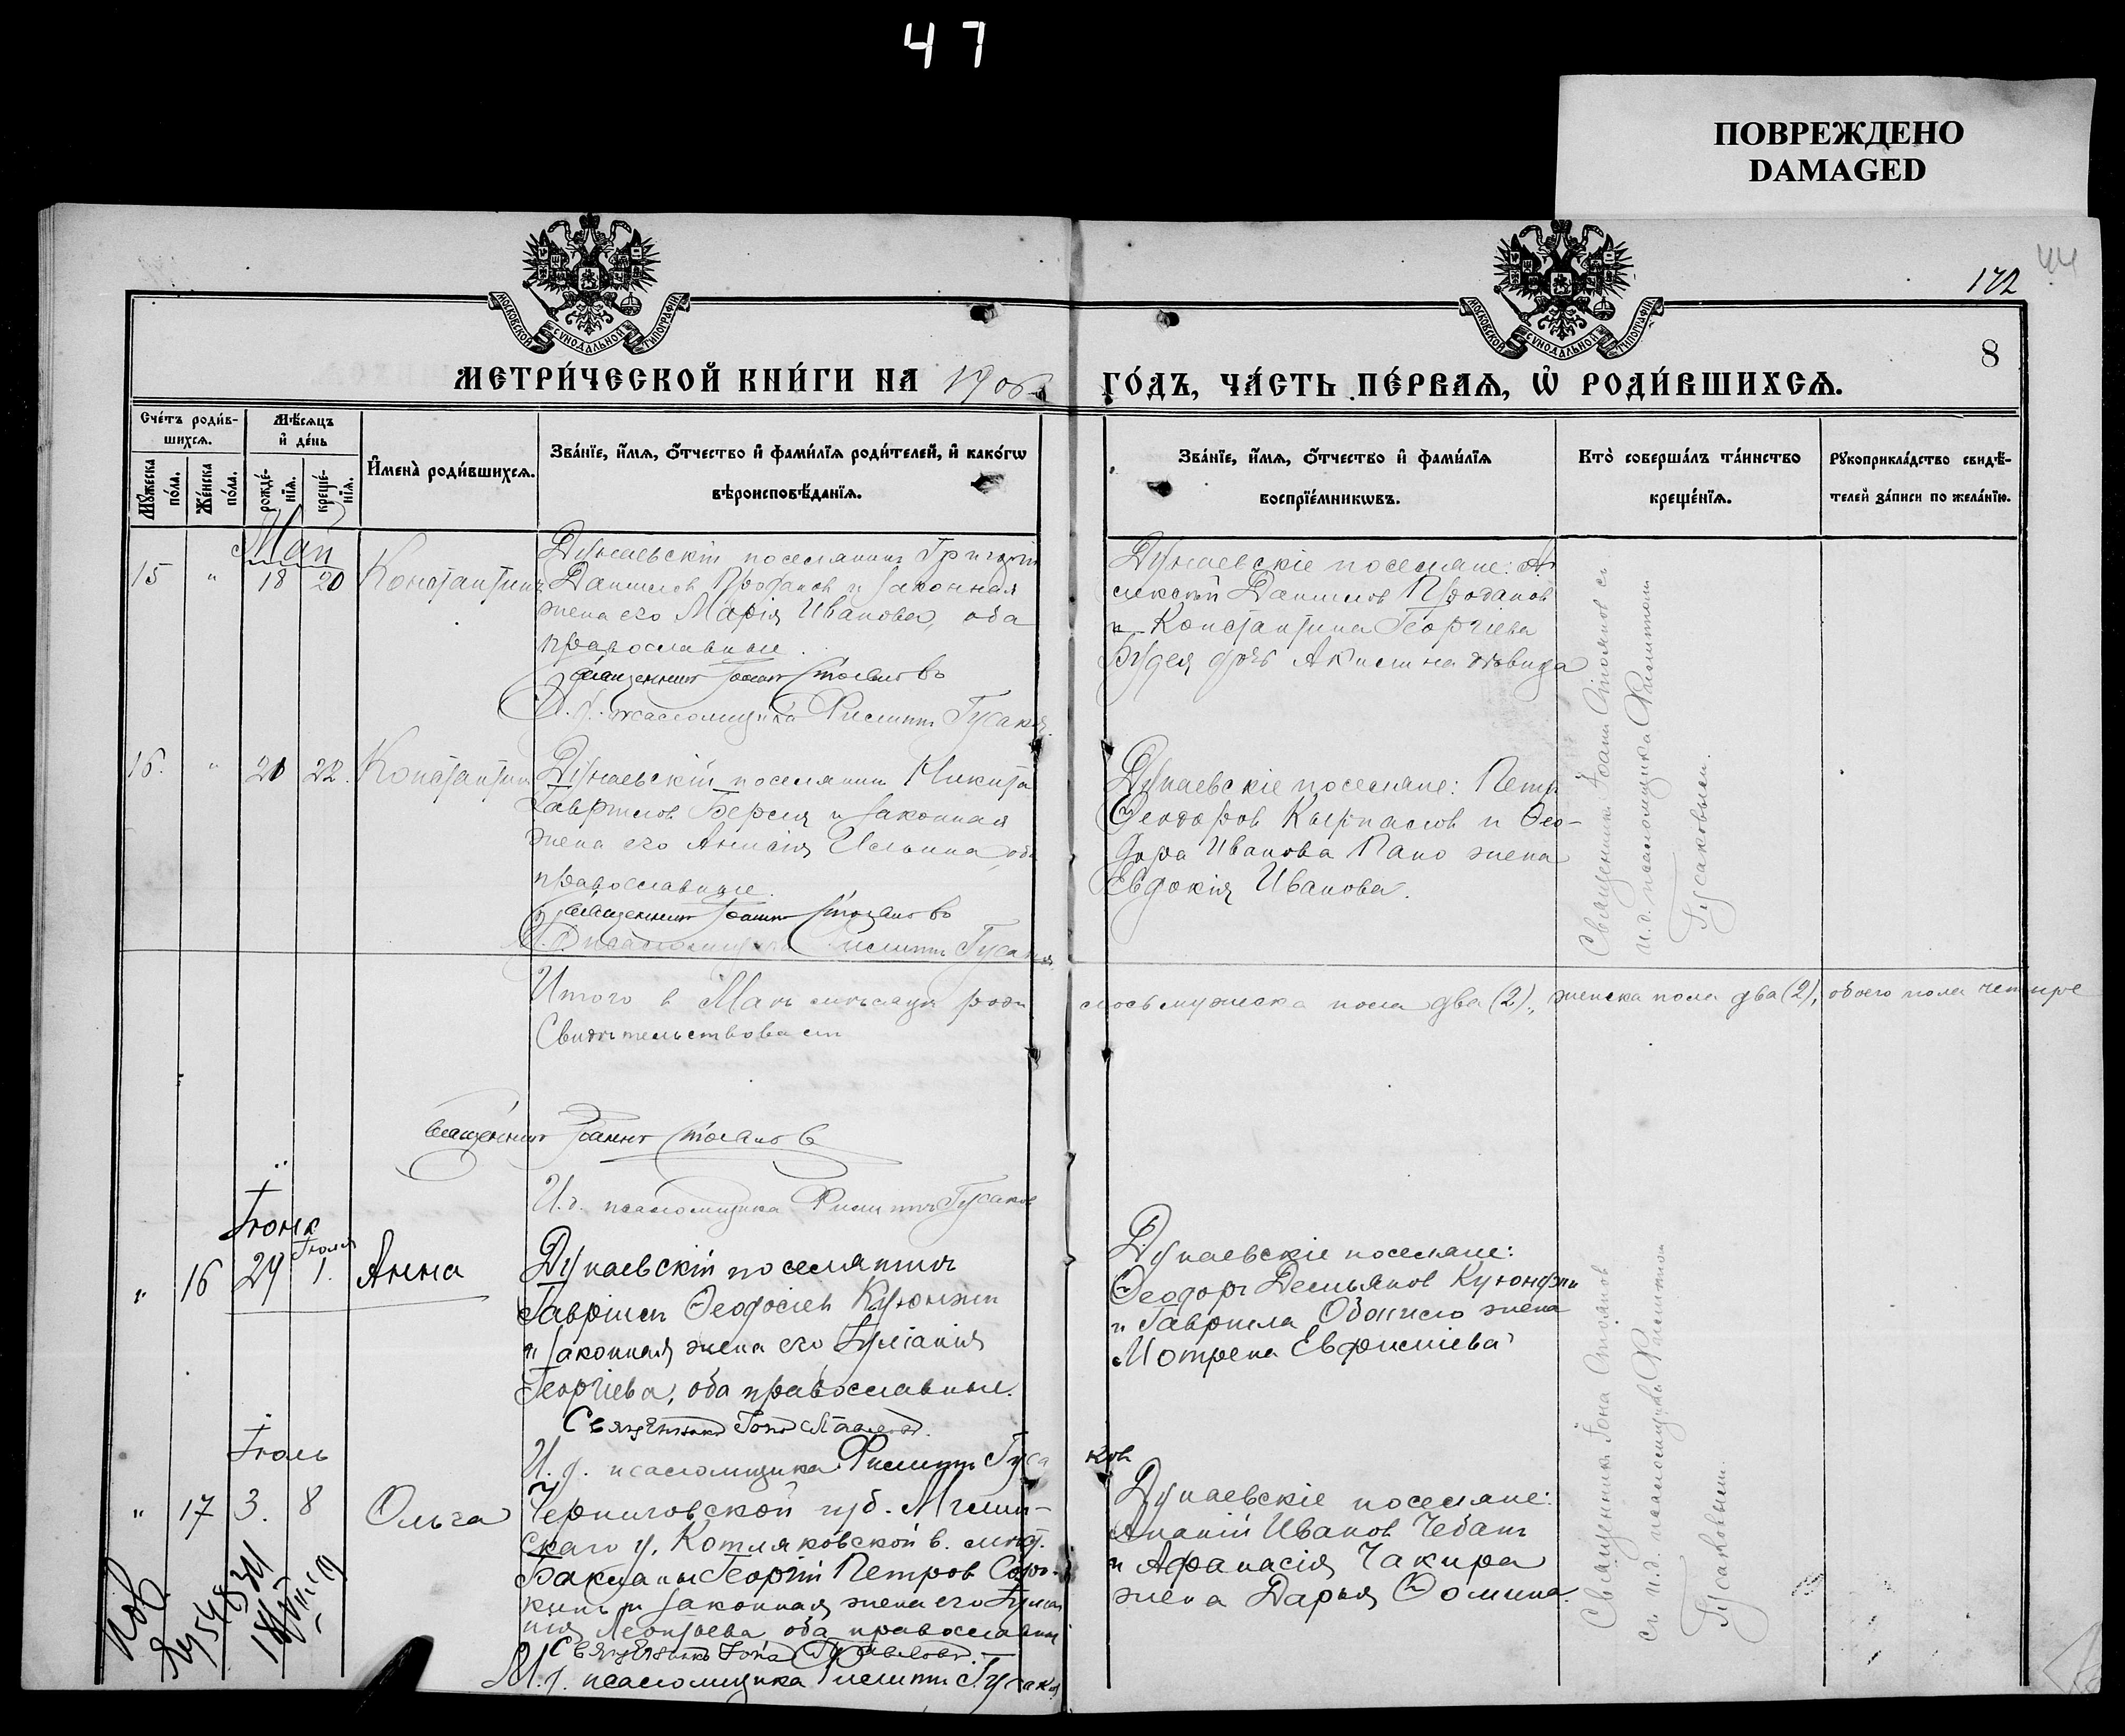 47
ПОВРЕЖДЕНО
DAMAGED
44
172
МОСКОВСКОЙ СѴНОДАЛЬНОЙ ТИПОГРАФІИ
МОСКОВСКОЙ СѴНОДАЛЬНОЙ ТИПОГРАФІИ
8
МЕТРИ́ЧЕСКОЙ КНИ́ГИ НА 1906 ГО́ДЪ, ЧА́СТЬ ПЕ́РВАЯ, Ѡ҆ РОДИ́ВШИХСЯ.
Сче́тъ роди́в-
шихся.
Мѣ́сяцъ
и҆ де́нь
Мꙋ́жеска по́ла.
Же́нска по́ла.
рожде́-нїя.
креще́-нїя.
И҆мена̀ роди́вшихся.
Зва́нїе, и҆́мя, ѻ҆́тчество и҆ фами́лїя роди́телей, и҆ како́гѡ
вѣроисповѣ́данїя.
Зва́нїе, и҆́мя, ѻ҆́тчество и҆ фами́лїя
воспрїе́мникѡвъ.
Кто̀ соверша́лъ та́инство
креще́нїя.
Рꙋкоприкла́дство свидѣ́-
телей за́писи по жела́нїю.
Май
15 " 18 20 Константинъ
Дунаевскій поселянинъ Григорій
Данилов Проданов и законная
жена его Марія Иванова, оба
православные.
Священникъ Іоаннъ Стояновъ
И. д. псаломщика Филиппъ Гусаков
Дунаевскіе поселяне: А-
лексѣй Данилов Проданов
и Константина Георгіева
Будея дочь Акилина
Священникъ Іоаннъ Стояновъ съ
и. д. псаломщика Филиппомъ
Гусаковымъ.
16. " 20 22. Константинъ
Дунаевскій поселянинъ Никита
Гаврилов и законная
жена его Анисія Ильина, оба
православные.
Священникъ Іоаннъ Стояновъ
И. д. псаломщика Филиппъ Гусаков
Дунаевскіе поселяне: Петръ
Ѳеодоров и Ѳео-
дора Иванова Пано жена
Евдокія Иванова.
Итого в Маѣ мѣсяцѣ роди лось мужеска пола два (2), женска пола два (2), обоего пола четыре
Свидѣтельствовали
Священникъ Іоаннъ Стояновъ
И. д. псаломщика Филиппъ Гусаков
Іюнь
" 16 29 Іюля 1. Анна
Дунаевскій поселянинъ
Гавріилъ Ѳеодосіев Куюнжи
и законная жена его Іуліанія
Георгіева, оба православные.
Священникъ Іона
И. д. псаломщика Филиппъ Гуса ков
Дунаевскіе поселяне:
Ѳеодоръ Демьянов Куюнджи
и Гаврила жена
Мотрена
Священникъ Іона
съ и.д. псаломщика Филиппом
Гусаковымъ.
Іюль
" 17 3. 8 Ольга
Черниговской губ. Мглин-
скаго у. Котляковской в.
Бакланы Георгій Петров Соро-
кинъ и законная жена его Іуліа-
нія Леонтьева оба православные
Священникъ Іона
И. д. псаломщика Филиппъ Гусаков
Дунаевскіе поселяне:
Ананій Иванов Чебанъ
и Афанасія Чакира
жена Дарья Ѳомина.